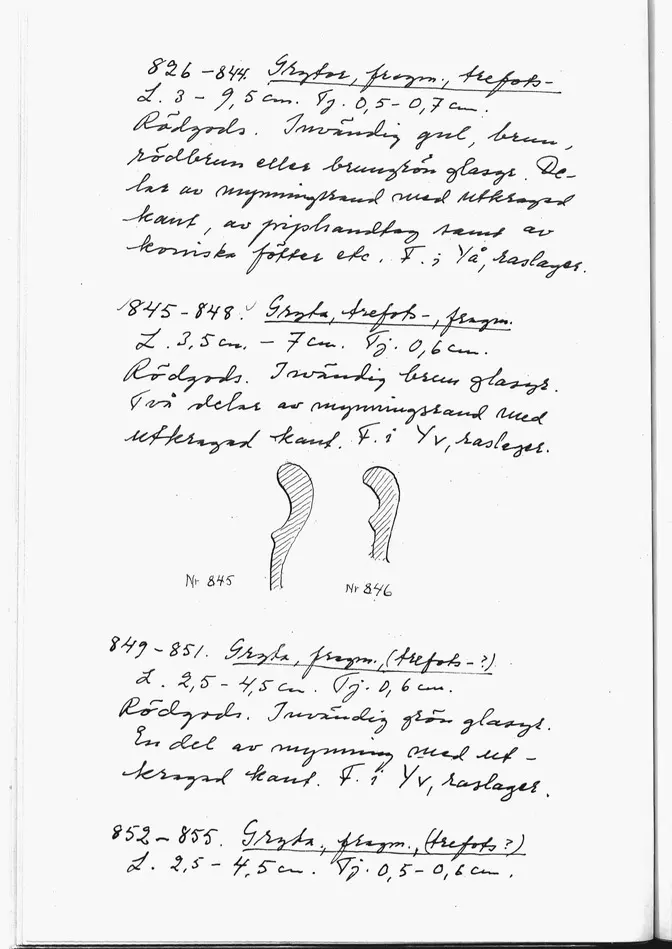 826-844. Grytor, fragm., trefots-
L. 3 - 9,5 cm. Tj. 0,5 - 0,7 cm.
Rödgods. Invändig gul, brun,
rödbrun eller brungrön glasyr. De-
lar av mynningsrand med utkragad
kant, av pipshandtag samt av
koniska fötter etc. F. i Yå, raslager.
845-848. Gryta, trefots-, fragm.
L. 3,5 cm. - 7 cm. Tj. 0,6 cm.
Rödgods. Invändig brun glasyr.
Två delar av mynningsrand med
utkragad kant. F. i Yv, raslager.
Nr 845 Nr 846
849-851. Gryta, fragm., (trefots-?)
L. 2,5 - 4,5 cm. Tj. 0,6 cm.
Rödgods. Invändig grön glasyr.
En del av mynning med ut-
kragad kant. F. i Yv, raslager.
852-855. Gryta, fragm., (trefots?)
L. 2,5 - 4,5 cm. Tj. 0,5 - 0,6 cm.